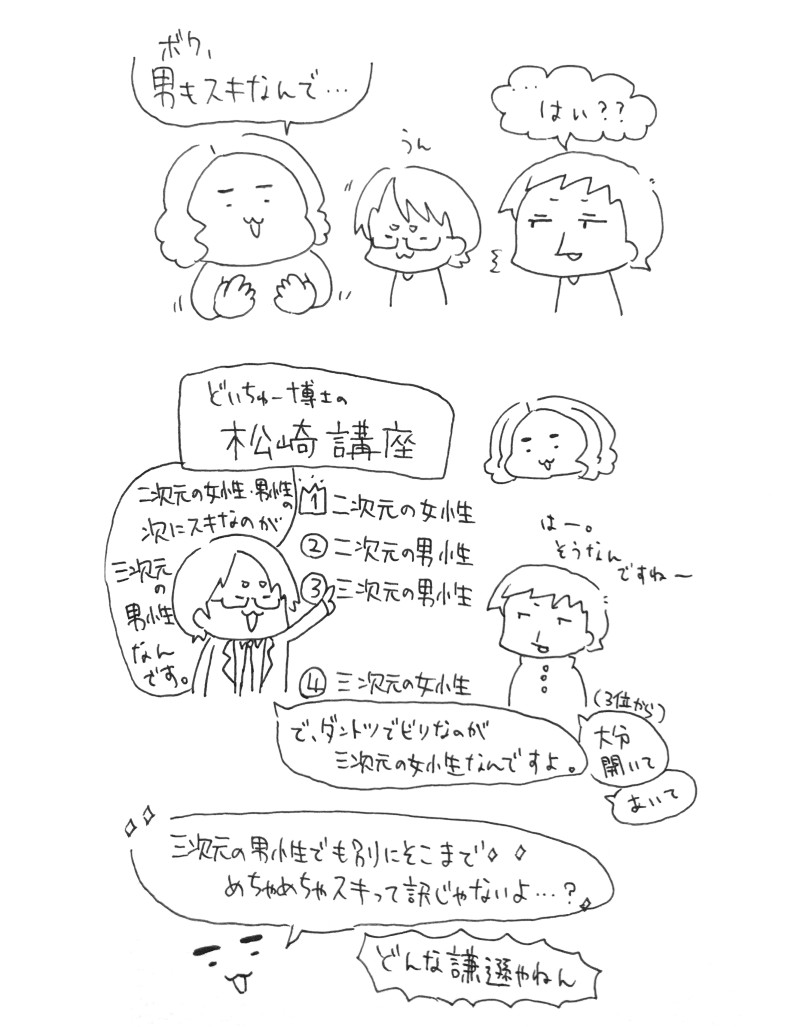 ボク、
男もスキなんで…
うん
…
はい??
どいちゅー博士の
松崎講座
二次元の女性・男性の
次にスキなのが
三次元
の
男性
なん
です。
1 二次元の女性
② 二次元の男性
③ 三次元の男性
④ 三次元の女性
はー。
そうなん
ですね〜
で、ダントツでビリなのが
三次元の女性なんですよ。
(3位から)
大分
開いて
あいて
三次元の男性でも別にそこまで
めちゃめちゃスキって訳じゃないよ…?
どんな謙遜やねん